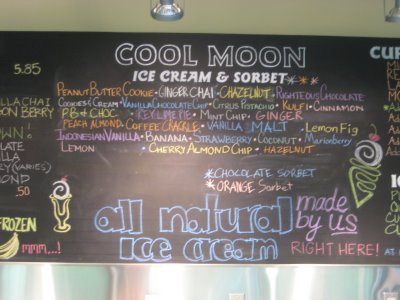 COOL MOON
ICE CREAM & SORBET
5.85
PEANUT BUTTER COOKIE · GINGER CHAI · CHAZELNUT · RIGHTEOUS CHOCOLATE
COOKIES & CREAM · VANILLA CHOCOLATE CHIP · CITRUS PISTACHIO · KULFI · CINNAMON
PB & CHOC · KEY LIME PIE · MINT CHIP · GINGER
PEACH ALMOND · COFFEE CRACKLE · VANILLA MALT · Lemon Fig
INDONESIAN VANILLA · BANANA · STRAWBERRY · COCONUT · Marionberry
LEMON · CHERRY ALMOND CHIP · HAZELNUT
*CHOCOLATE SORBET
*ORANGE Sorbet
all natural
ice cream
made
by us
RIGHT HERE!
CHAI
BERRY
.50
FROZEN
mmm...!